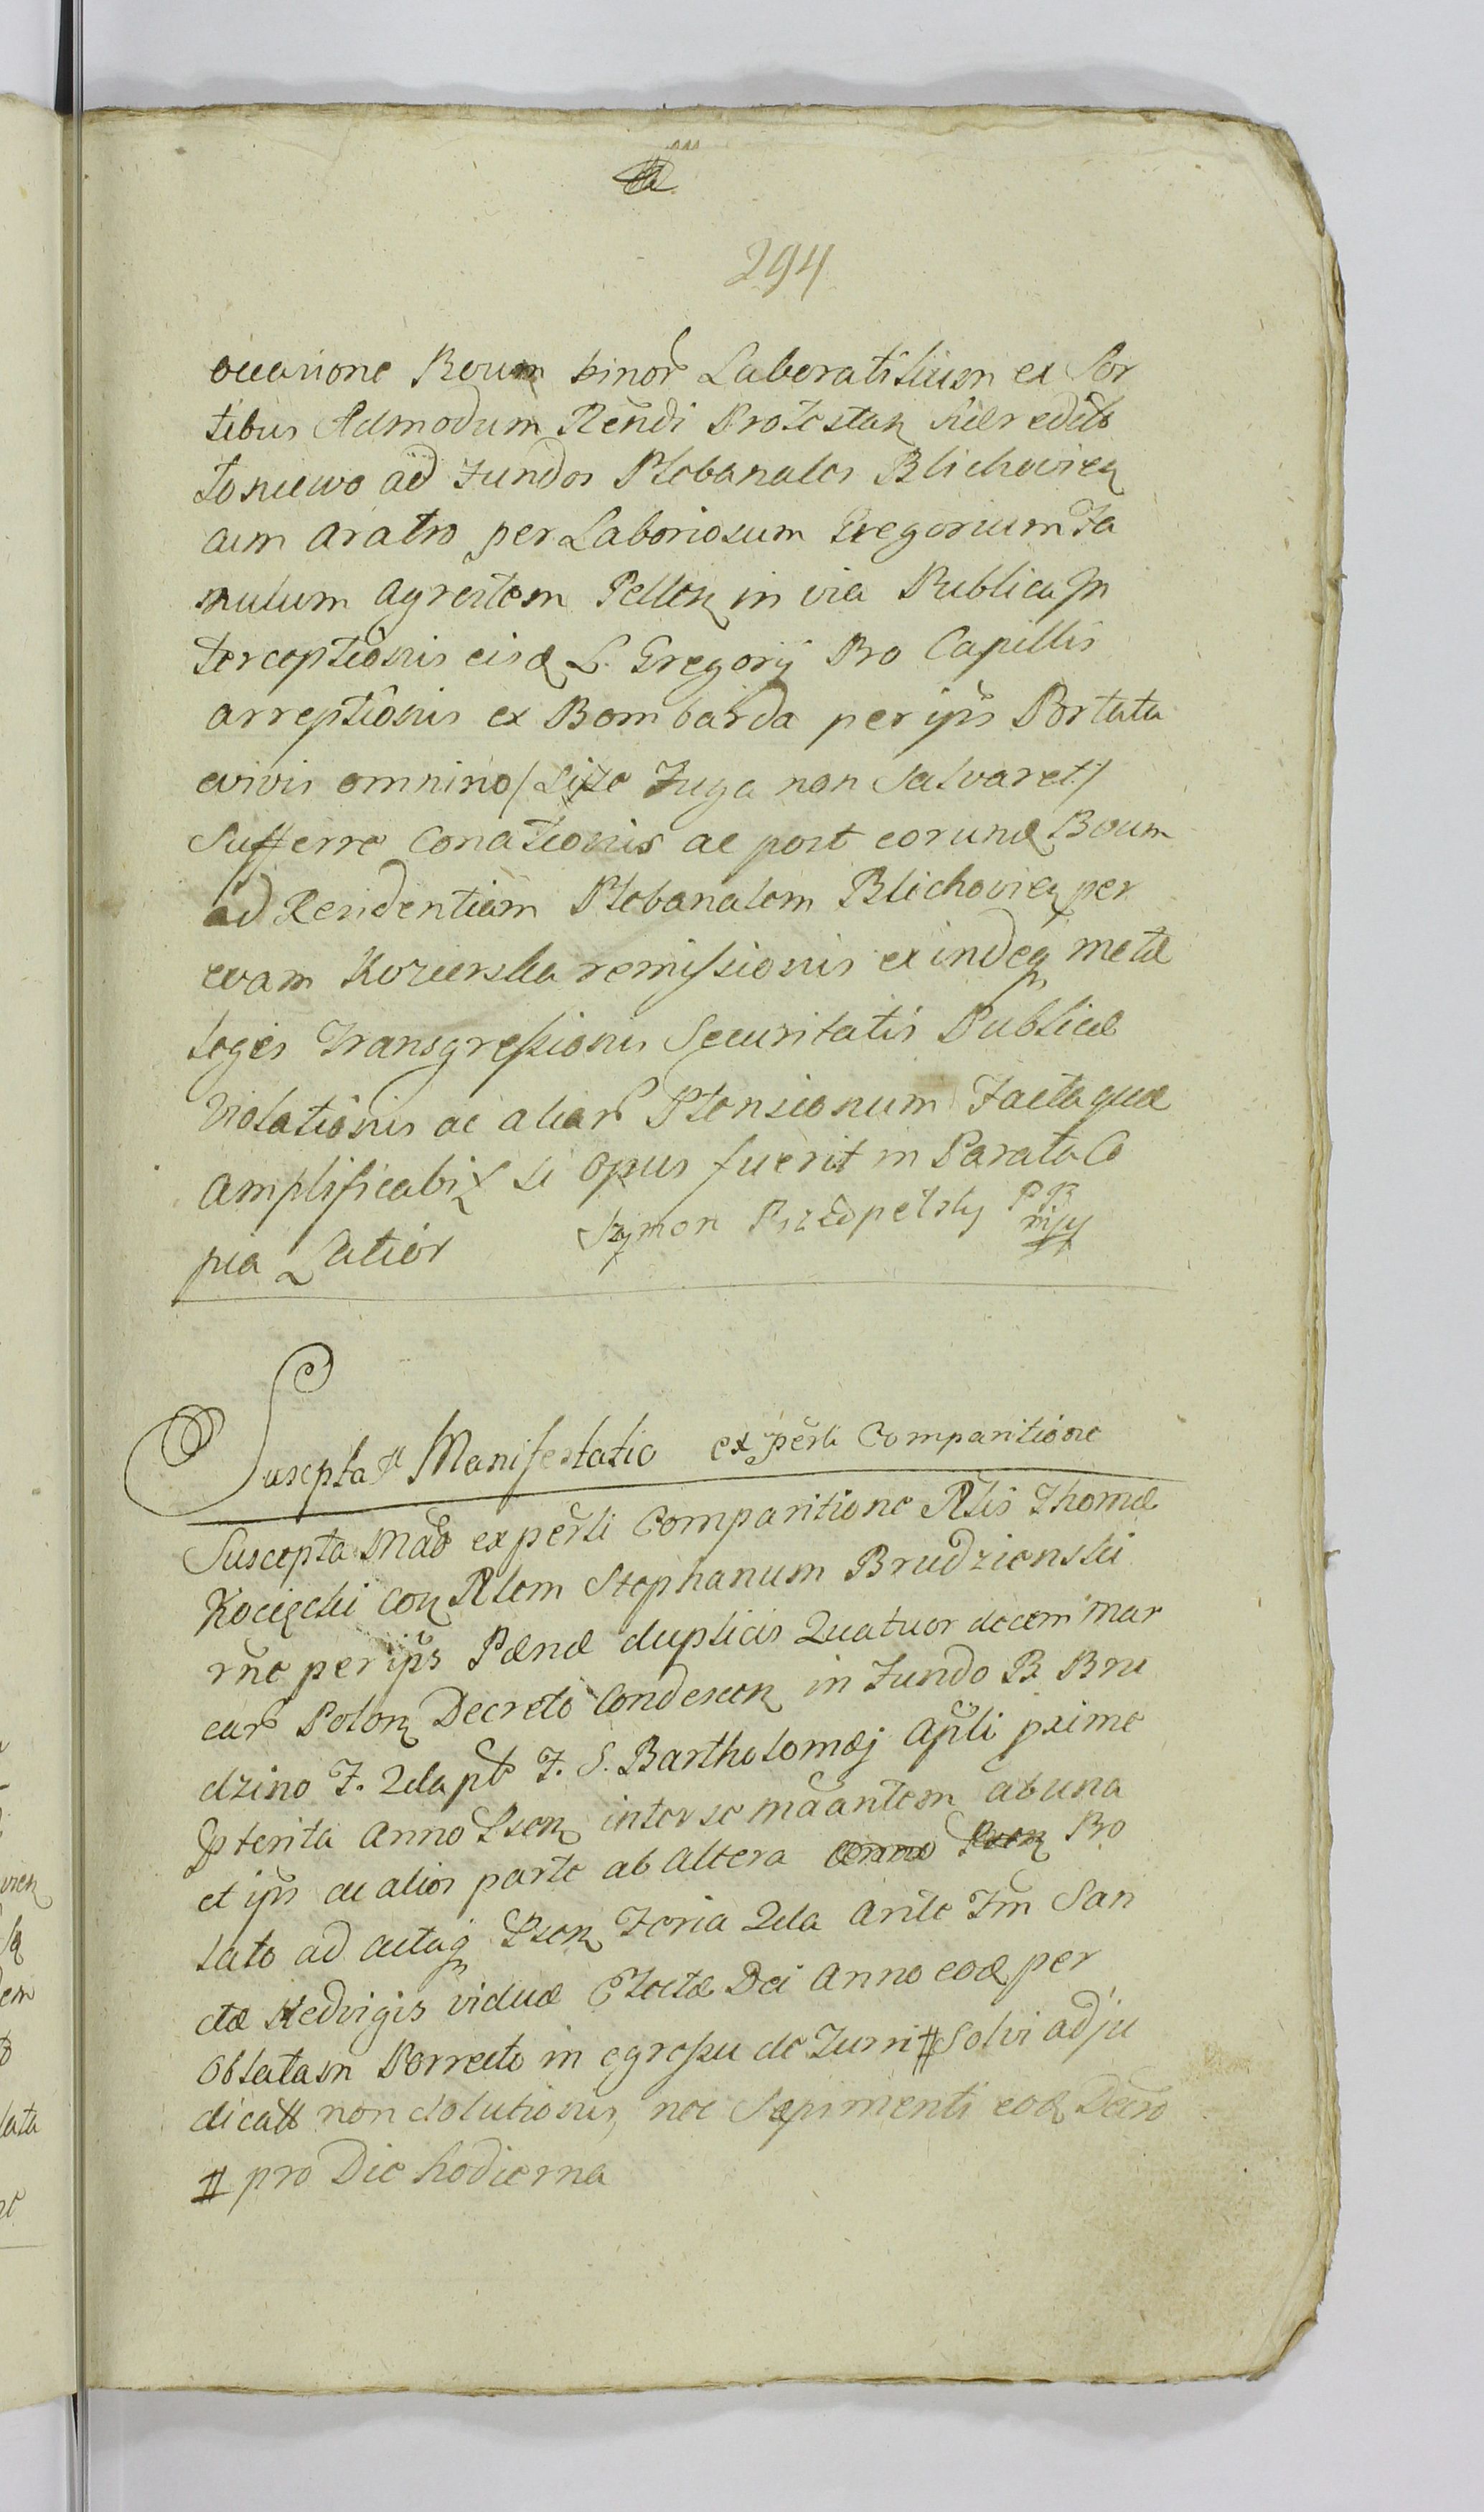 294
occasione Boum binor Laboratilium ex Sor
tibus Admodum Rendi Protestan hæredit
toniewo ad Fundos Plebanales Blichovien
cum aratro per Laboriosum Gregorium Fa
mulum agrestem Pellen in via Publica In
terceptionis eisd L. Gregorij Pro Capillis
arreptionis ex Bombarda per ips Portata
evivis omnino /: Si se Fuga non Salvaret :/
Sufferre Conationis ac post eorund Boum
ad Residentiam Plebanalem Blichovien per
evam remissionis exindeq metæ
legis Transgressionis Securitatis Publicæ
Violationis ac aliar Plensionum Facta quæ
amplificabit si Opus fuerit in Parata Co
pia Latior Szymon Przedpelsky PR mpp
Suscepta # Manifestatio ex persli Comparitione
Suscepta Mado ex persli Comparitione Nlis Thomæ
Kocięcki con Nlem Stephanum Brudzienski
rne per ips Pænæ duplicis Quatuor decem mar
car Polon Decreto Condescen in Fundo B. Bru
dzino F. 2da pt F. S. Bartholomæj Apli prime
pterita Anno Psen inter se maantem ab una
et ips ac alios parte ab altera Anno Psen Pro
lato ad actaq Psen Feria 2da Ante Fm San
ctæ Hedvigis viduæ Electæ Dei Anno eod per
Oblatam Porrecto in egressu de Turri # Solvi adju
dicat non Solutionis, nec Sepimenti eod Decro
# pro Die hodierna